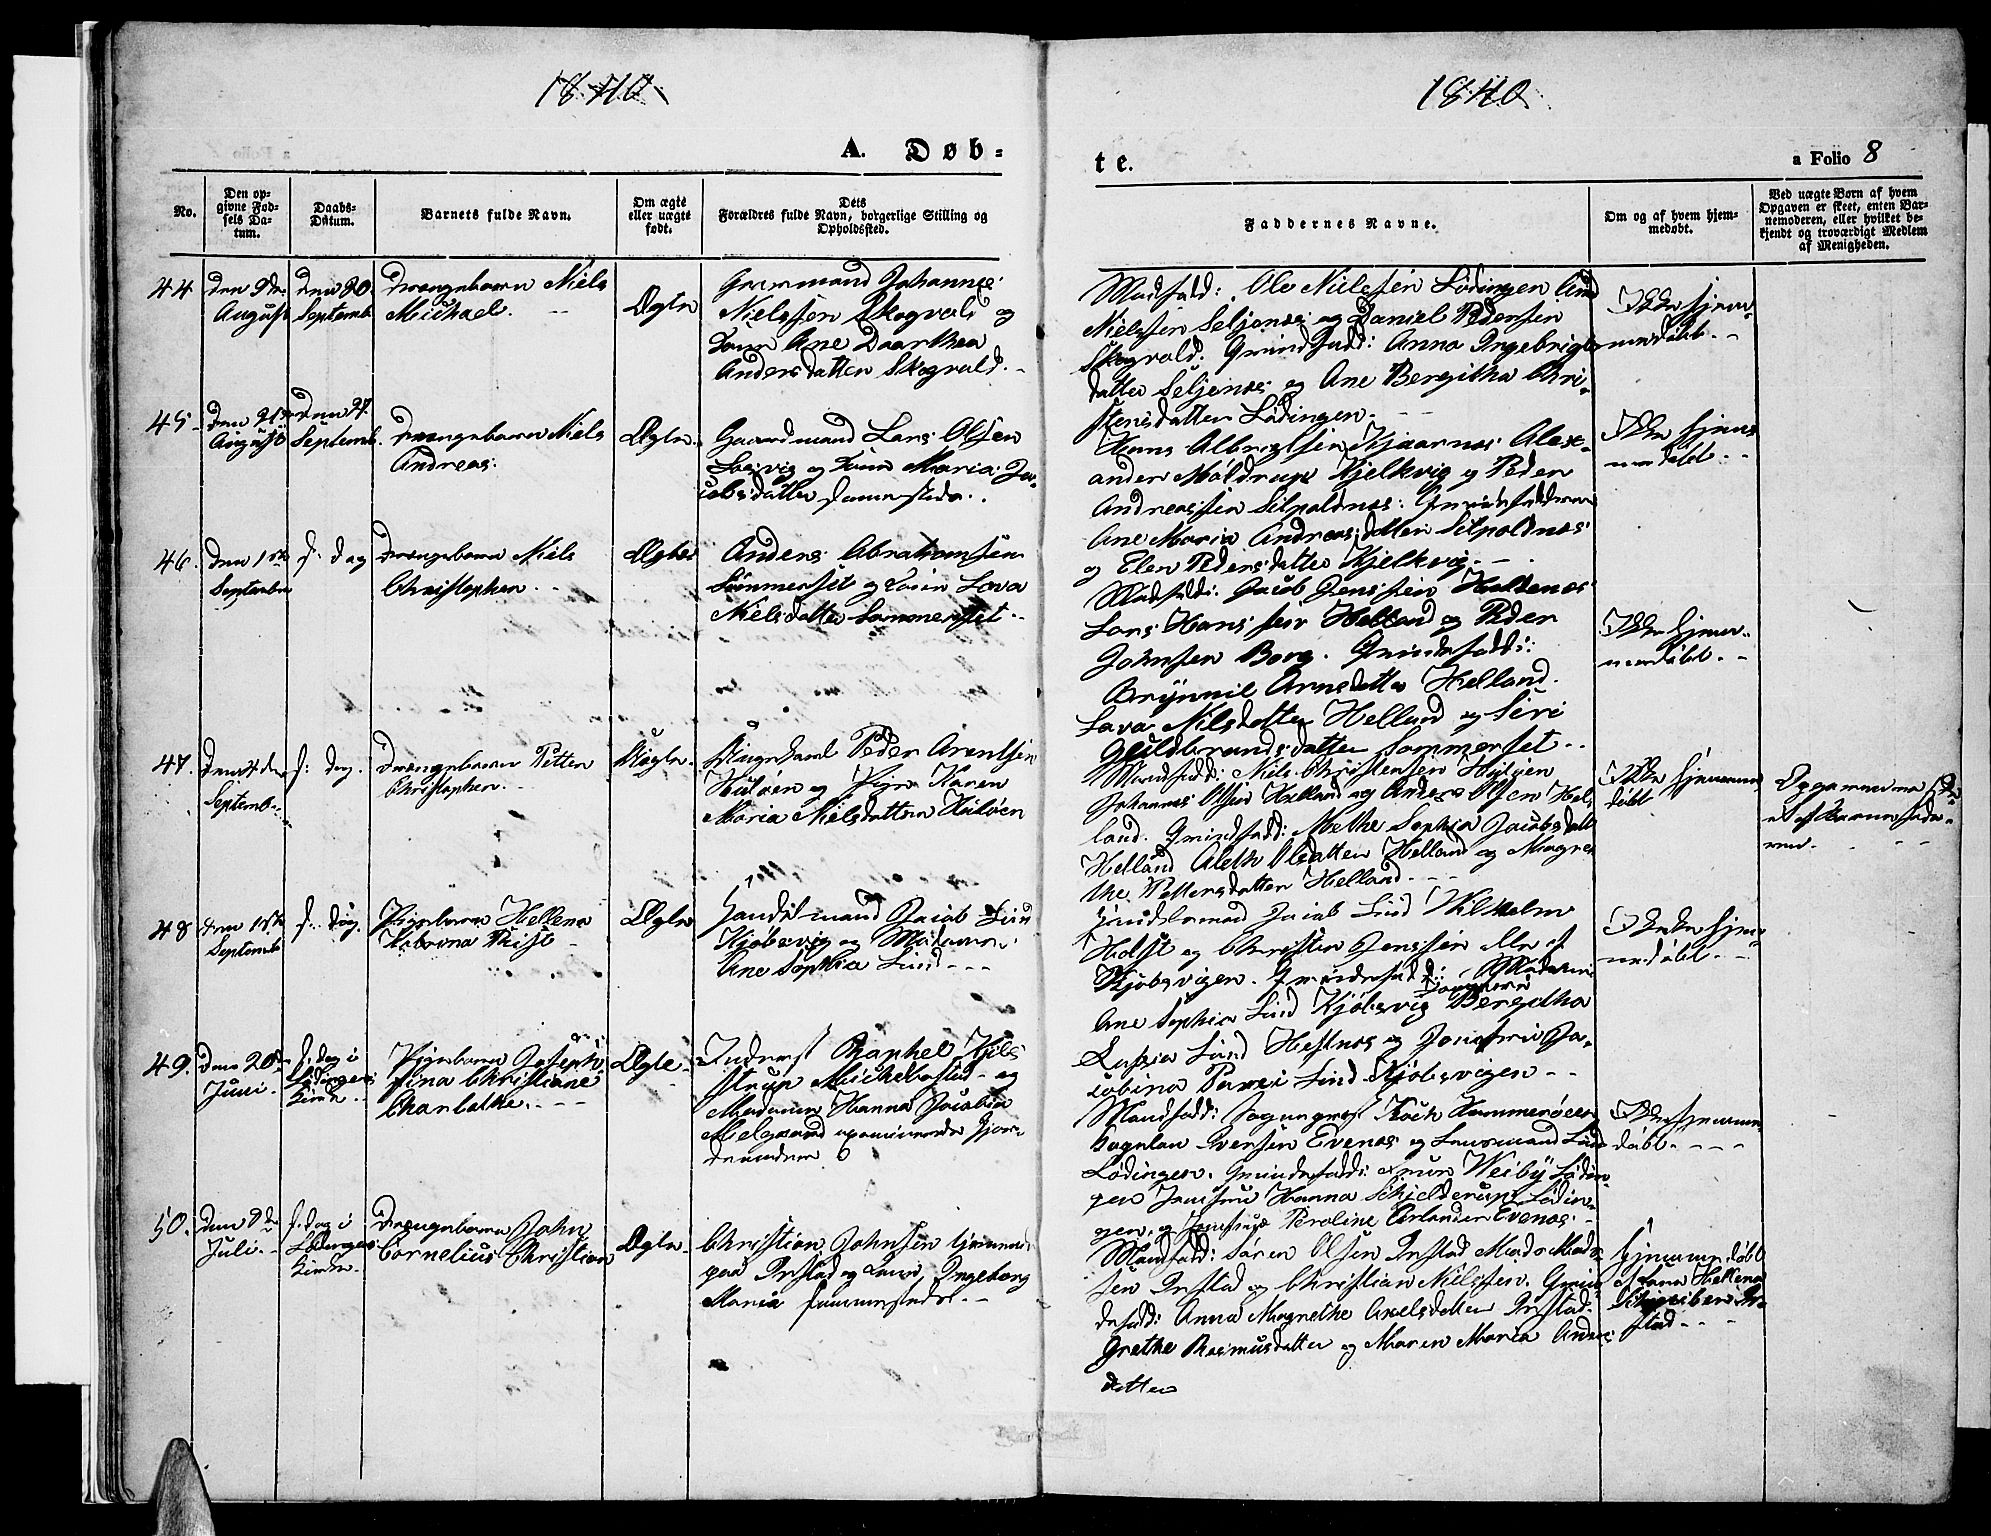 1840
1840
A. Døb-
te.
a Folio 8
No.
Den op-
givne Fød-
sels Da-
tum.
Daabs-
Datum.
Barnets fulde Navn.
Om ægte
eller uægte
født.
Dets
Forældres fulde Navn, borgerlige Stilling og
Opholdssted.
Faddernes Navne.
Om og af hvem hjem-
medøbt.
Ved uægte Born af hvem
Opgaven er skeet, enten Bar-
nemoderen, eller hvilket be-
kjendt og troværdigt Medlem
af Menigheden.
44
den 9de
August
den 20
Septemb.
Drengebarn Niels
Michael.
Ægte
Gaarmand Johannes
Nielssen Skogvold og
Kone Ane Daarthea
Andersdatter Skogvold.
Mandfadd: Ole Nielssen Lødingen
Nielssen Seljenæs og Daniel Pedersen
Skogvold. Qvindfadd: Anna Ingebrigts
datter Seljenæs og Ane Bergitha Chri-
stensdatter Lødingen.
Ikke hjem-
medøbt.
45
den 21de
August
den 27.
Septemb.
Drengebarn Niels
Andreas.
Ægte.
Gaardmand Lars Olsen
og Kone Maria Ja-
cobsdatter sammesteds.
Hans Albrigtsen Kjaarnes Alex-
ander Møldrup Kjelkvig og Peder
Andreassen Silpoldnæs: Qvindefaddere
Ane Maria Andreasdatter Silpoldnæs
og Elen Pedersdatter Kjelkvig.
Ikke hjem
medøbt.
46.
den 1ste
September
s: Dag
Drengebarn Niels
Christopher.
Ægte
Anders Abrahamsen
Sømmerset og Kone Lava
Nielsdatter Sommerset.
Mandfadd: Jacob Jenssen
Lars Hanssen Helland og Peder
Johnsen Borg. Qvindefadd:
Brynnil Arnsdatter Helland.
Lava Nilsdatter Helland og Siri
Guldbrandsdatter Sommerset.
Ikke hjem-
medøbt.
47.
Septemb.
s: Dag.
Drengebarn Petter
Christopher.
Uægte.
Ungkarl Peder Arentsen
Huløen og Pige Karen
Maria Nielsdatter Huløen
Mandfadd: Niels Christensen
Johannes Olsen Helland og Anders Olsen Hel-
land. Qvindfadd: Methe Sophia Jacobsdatt
Helland Aleth Olsdatter Helland og Magre
the Pettersdatter Helland.
Ikke hjemme
døbt
Opgaverne
af Barnefade-
ren.
48
Septemb
s: Dag.
Pigebarn Hellena
Ægte
Handelsmand Jacob Lund
Kjøbsvig og Madame
Ane Sophia Lund
Handelsmand Jacob Lund Wilhelm
Holst og Christen Jenssen alle af
Kjøbsvigen. Qvindefadd: Madame
Ane Sophia Lund Kjøbsvig Jomfrue Bergitha
Lund Hestnæs og Jomfrue Ja-
cobina Lund Kjøbsvigen
Ikke hjem-
medøbt.
49.
Den 20de
Juni
s: Dag i
Lødingens
Kirke.
Pigebarn Joseph-
fina Christiane
Charlotha.
Ægte
Raphel Hjels
strup og
Madame Hanna Jacobia
Mandfadd: Koch Hammerøen
Evenæs og Lensmand Lund
Lødingen. Qvindefadd: Fruer Weiby Lødin-
gen Jomfrue Hanna Schjelderup Lødin-
gen og Jomfrue Peroline Evenæs.
Ikke hjemme-
døbt.
50.
den 9de
Juli.
s: Dag i
Lødingens
Kirke.
Drengebarn John
Cornelius Christian
Ægte
Christian Johnsen
paa og Kone Ingeborg
Maria sammesteds.
Mandfadd: Søren Olsen Mads Mads-
sen og Christian Nielssen. Qvin-
defadd: Anna Magrethe Axelsdatter
Grethe Rasmusdatter og Maren Maria Anders
datter
Hjemmedøbt
af Lava Hellena
stad.